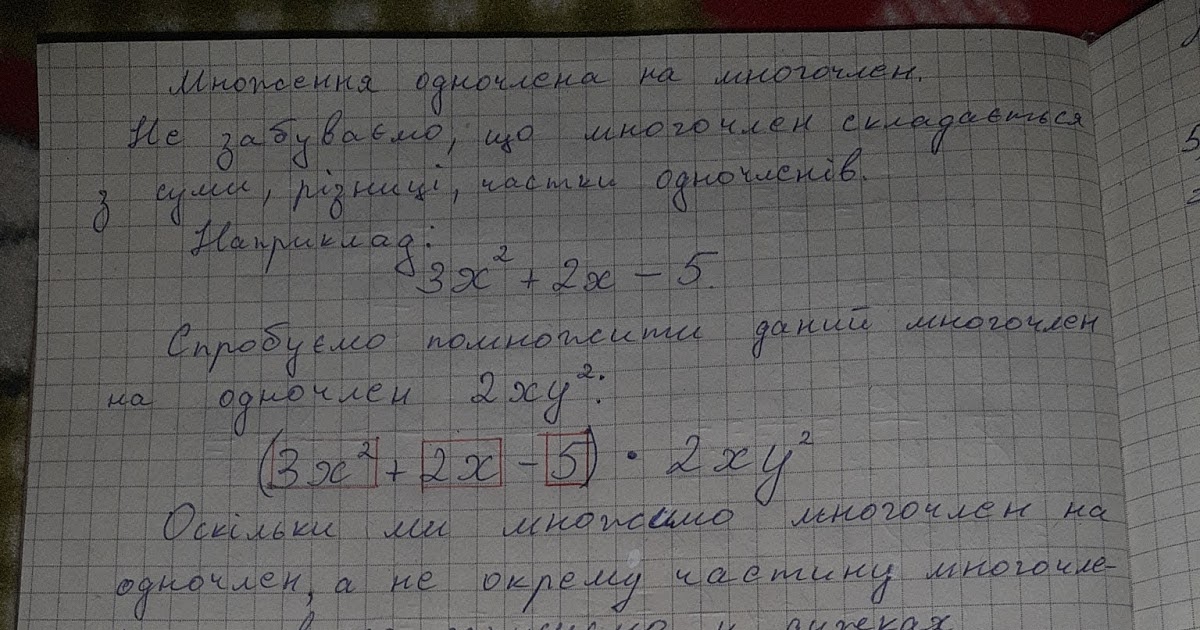 Множення одночлена на многочлен.
Не забуваємо, що многочлен складається
з суми, різниці, частки одночленів.
Наприклад:
3x² + 2x - 5.
Спробуємо помножити даний многочлен
на одночлен 2xy²:
(3x² + 2x - 5) · 2xy²
Оскільки ми множимо многочлен на
одночлен, а не окрему частину многочле-